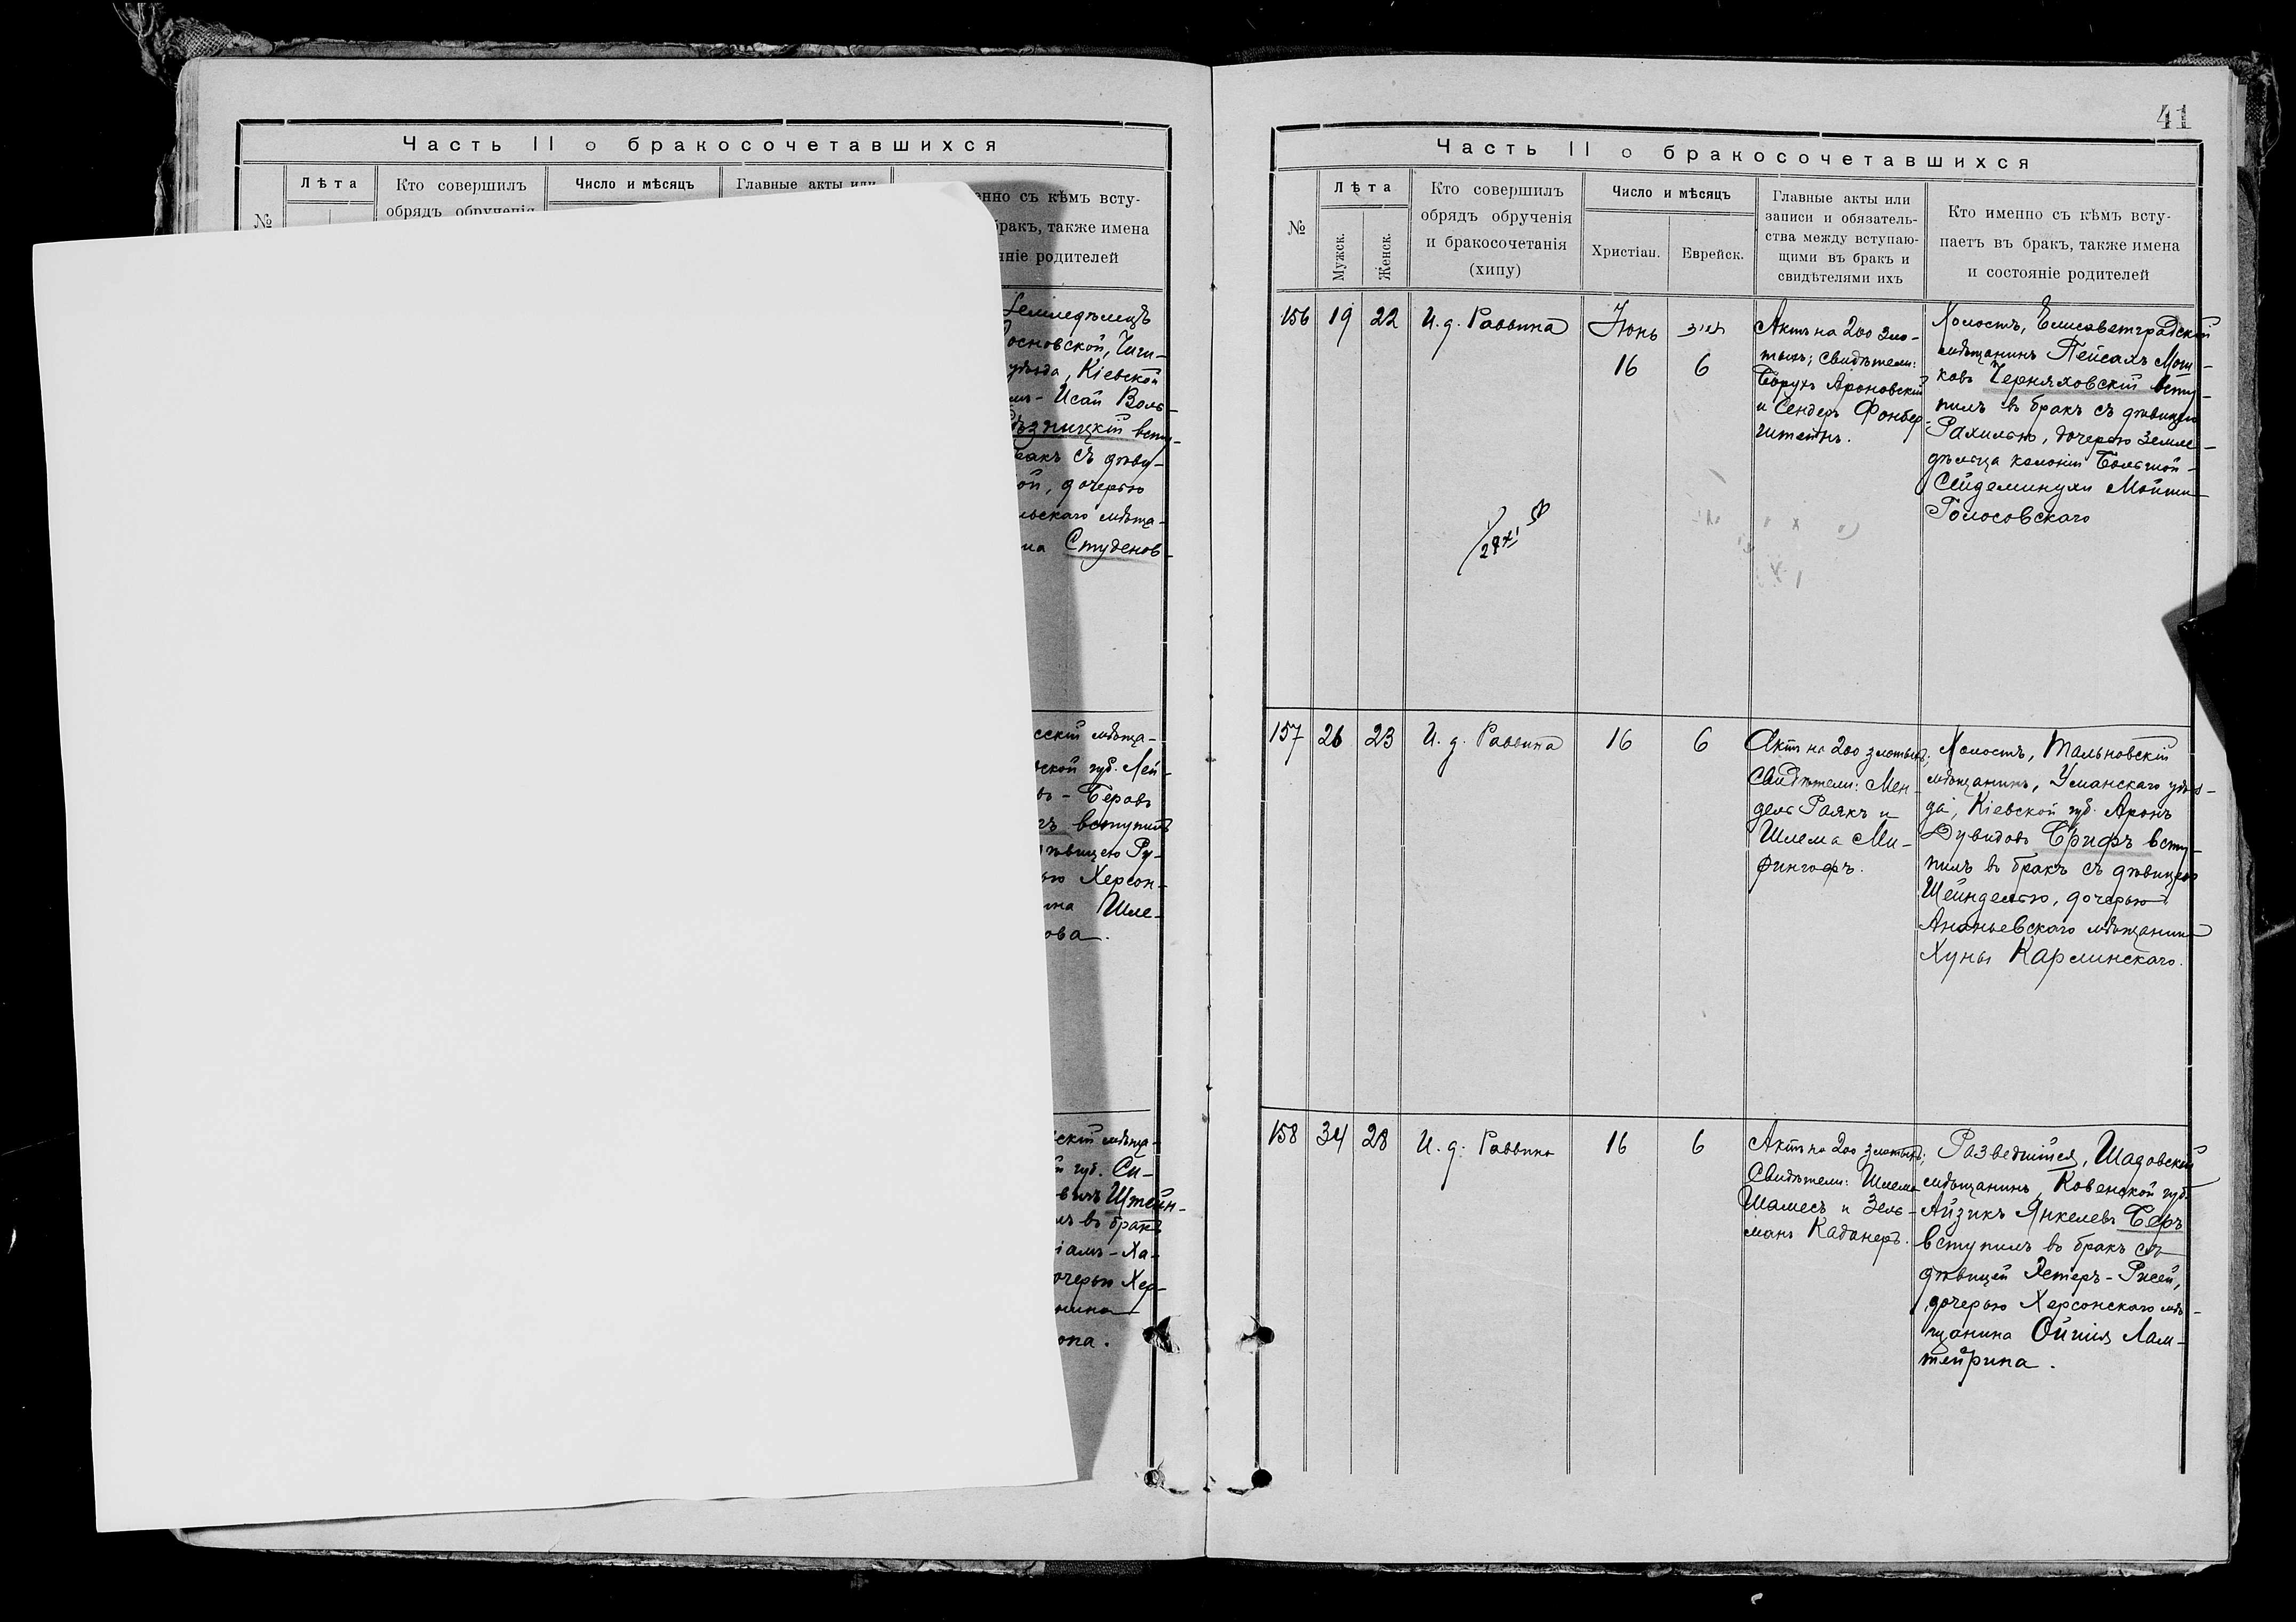 Часть II о бракосочетавшихся
№
Лѣта
Кто совершилъ
обрядъ обрученія
Число и мѣсяцъ
Главные акты или
нно съ кѣмъ всту-
бракъ, также имена
ніе родителей
Земледѣлецъ
основской, Чиги-
уѣзда, Кіевской
Исай Воль-
всту-
бракъ съ дѣви-
ой, дочерью
льскаго мѣща-
на Студенов-
сскій мѣща-
ской губ. Лей-
въ - Беровъ
вступилъ
дѣвицею Ру-
ью Херсон-
ина Шле-
ова.
скій мѣща-
й губ. Си-
Штейн-
лъ въ бракъ
іамъ-Ха-
дочерью Хер-
нина
она.
41
Часть II о бракосочетавшихся
№
Лѣта
Мужск.
Женск.
Кто совершилъ
обрядъ обрученія
и бракосочетанія
(хипу)
Число и мѣсяцъ
Христіан.
Еврейск.
Главные акты или
записи и обязатель-
ства между вступаю-
щими въ бракъ и
свидѣтелями ихъ
Кто именно съ кѣмъ всту-
паетъ въ бракъ, также имена
и состояніе родителей
156
19
22
И. д. Раввина
Іюнь
16
6
Актъ на 200 зло-
тыхъ; свидѣтели:
Борухъ Ароновскій
и Сендеръ Фонбер-
штейнъ.
Холостъ, Елисаветградскій
мѣщанинъ Пейсахъ Мош-
ковъ Черняховскій всту-
пилъ въ бракъ съ дѣвицею
Рахилью, дочерью земле-
дѣльца колоніи Большой-
Сейдеминухи Мойши
Голосовскаго
157
26
23
И. д. Раввина
16
6
Актъ на 200 злотыхъ;
Свидѣтели: Мен-
дель Раякъ и
Шлема Ми-
рингофъ.
Холостъ, Тальновскій
мѣщанинъ, Уманскаго уѣз-
да, Кіевской губ. Аронъ
Дувидовъ Брифъ всту-
пилъ въ бракъ съ дѣвицею
Шейнделью, дочерью
Ананьевскаго мѣщанина
Хуны Карлинскаго.
158
34
28
И. д. Раввина
16
6
Актъ на 200 злотыхъ;
Свидѣтели: Шлема
Шамесъ и Зель-
манъ Каданеръ.
Разведшійся, Шадовскій
мѣщанинъ, Ковенской губ.
Айзикъ Янкелевъ Беръ
вступилъ въ бракъ съ
дѣвицей Эстеръ-Рисей,
дочерью Херсонскаго мѣ-
щанина Ойшія Лам-
тейрина.